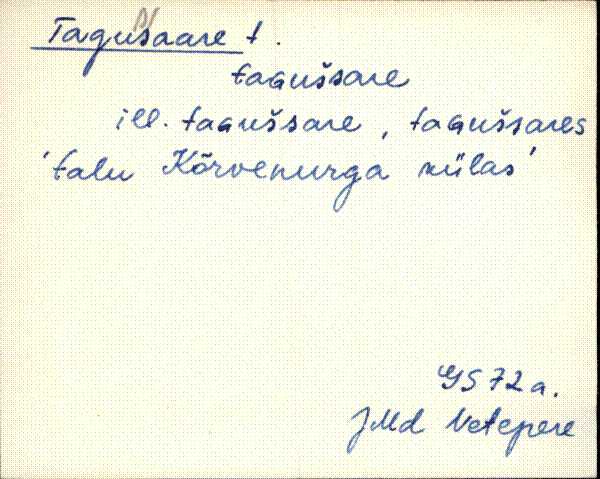 Tagusaare t.
taGušsare
ill. taGušsare, taGušsares
'talu Kõrvenurga külas'
JMd Vetepere